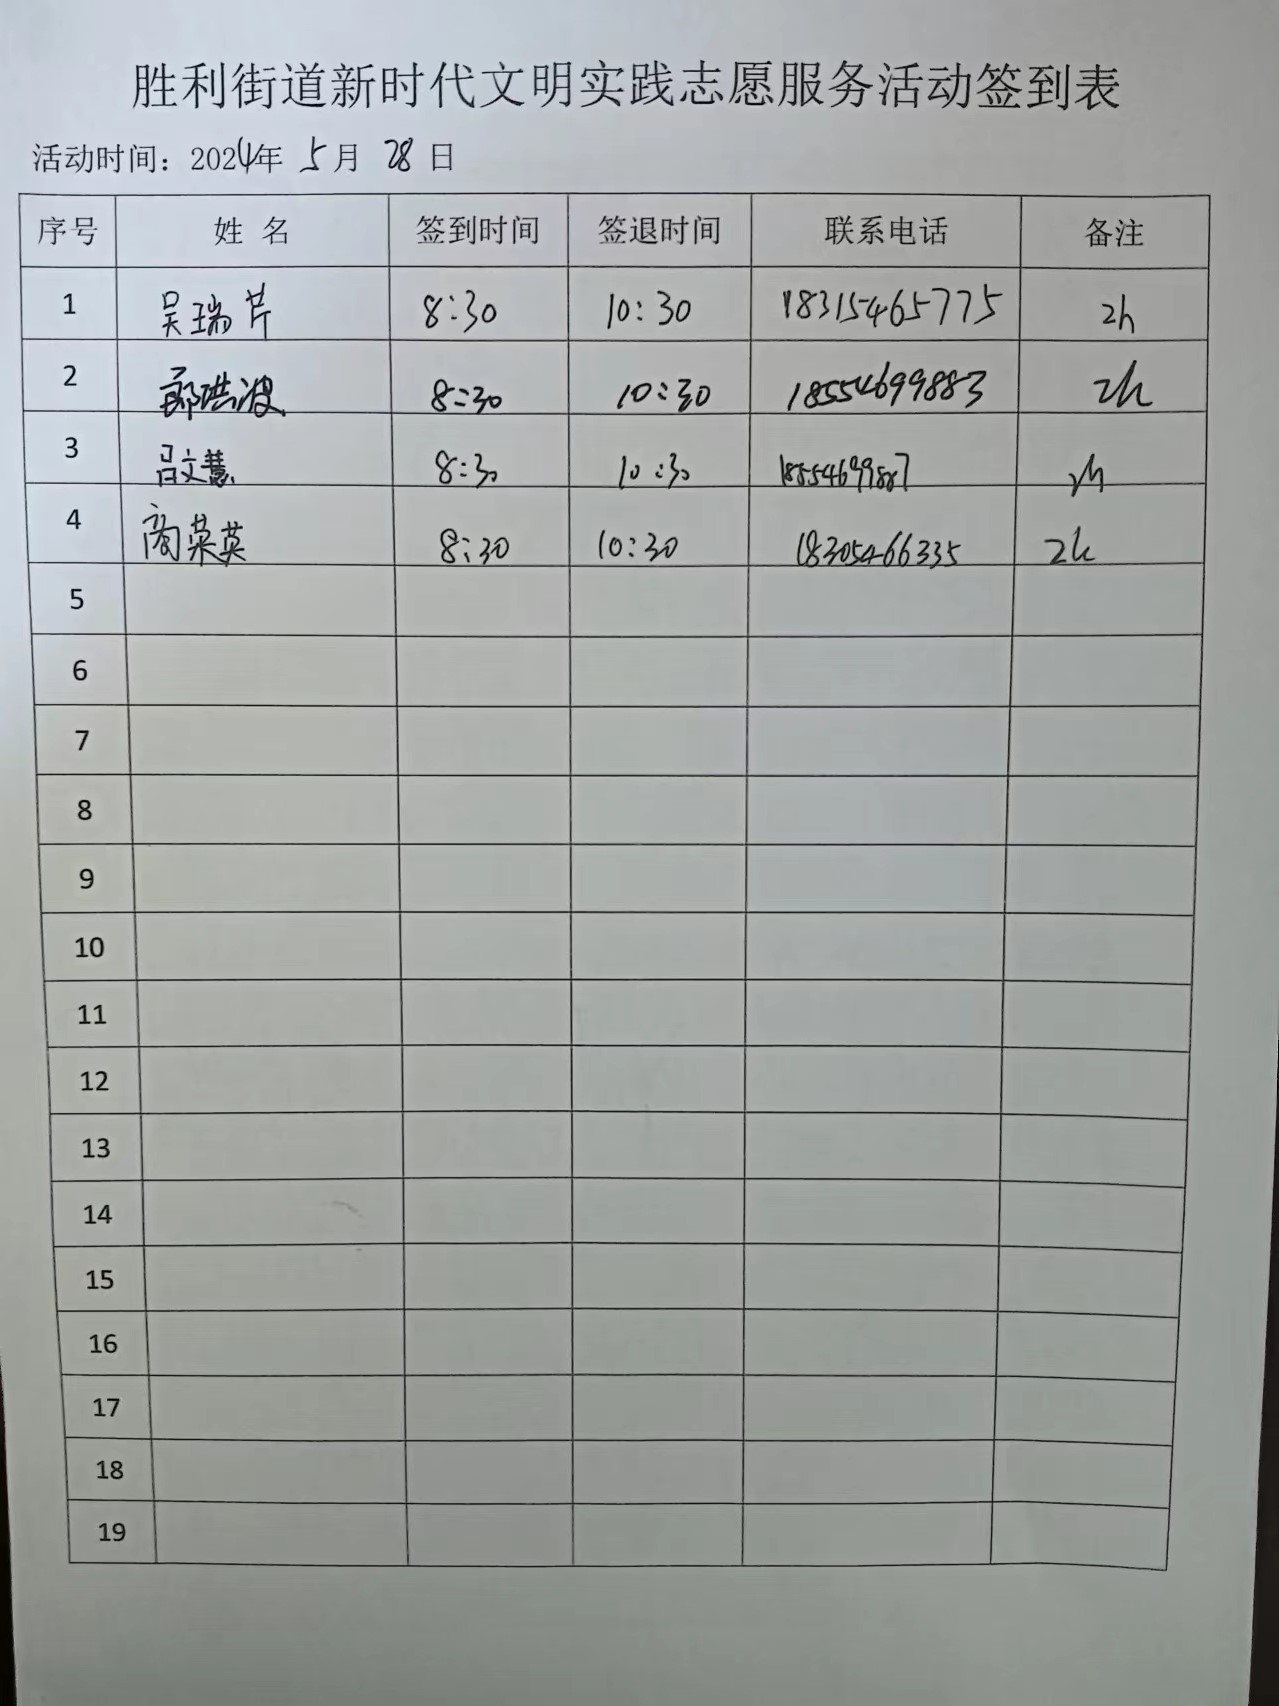 胜利街道新时代文明实践志愿服务活动签到表
活动时间：2024年 5月 28日
序号 姓 名 签到时间 签退时间 联系电话 备注
1 吴瑞芹 8:30 10:30 18315465775 2h
2 郭洪波 8:30 10:30 18554699883 2h
3 吕文慧 8:30 10:30 18554699887 2h
4 商荣英 8:30 10:30 18305466335 2h
5
6
7
8
9
10
11
12
13
14
15
16
17
18
19